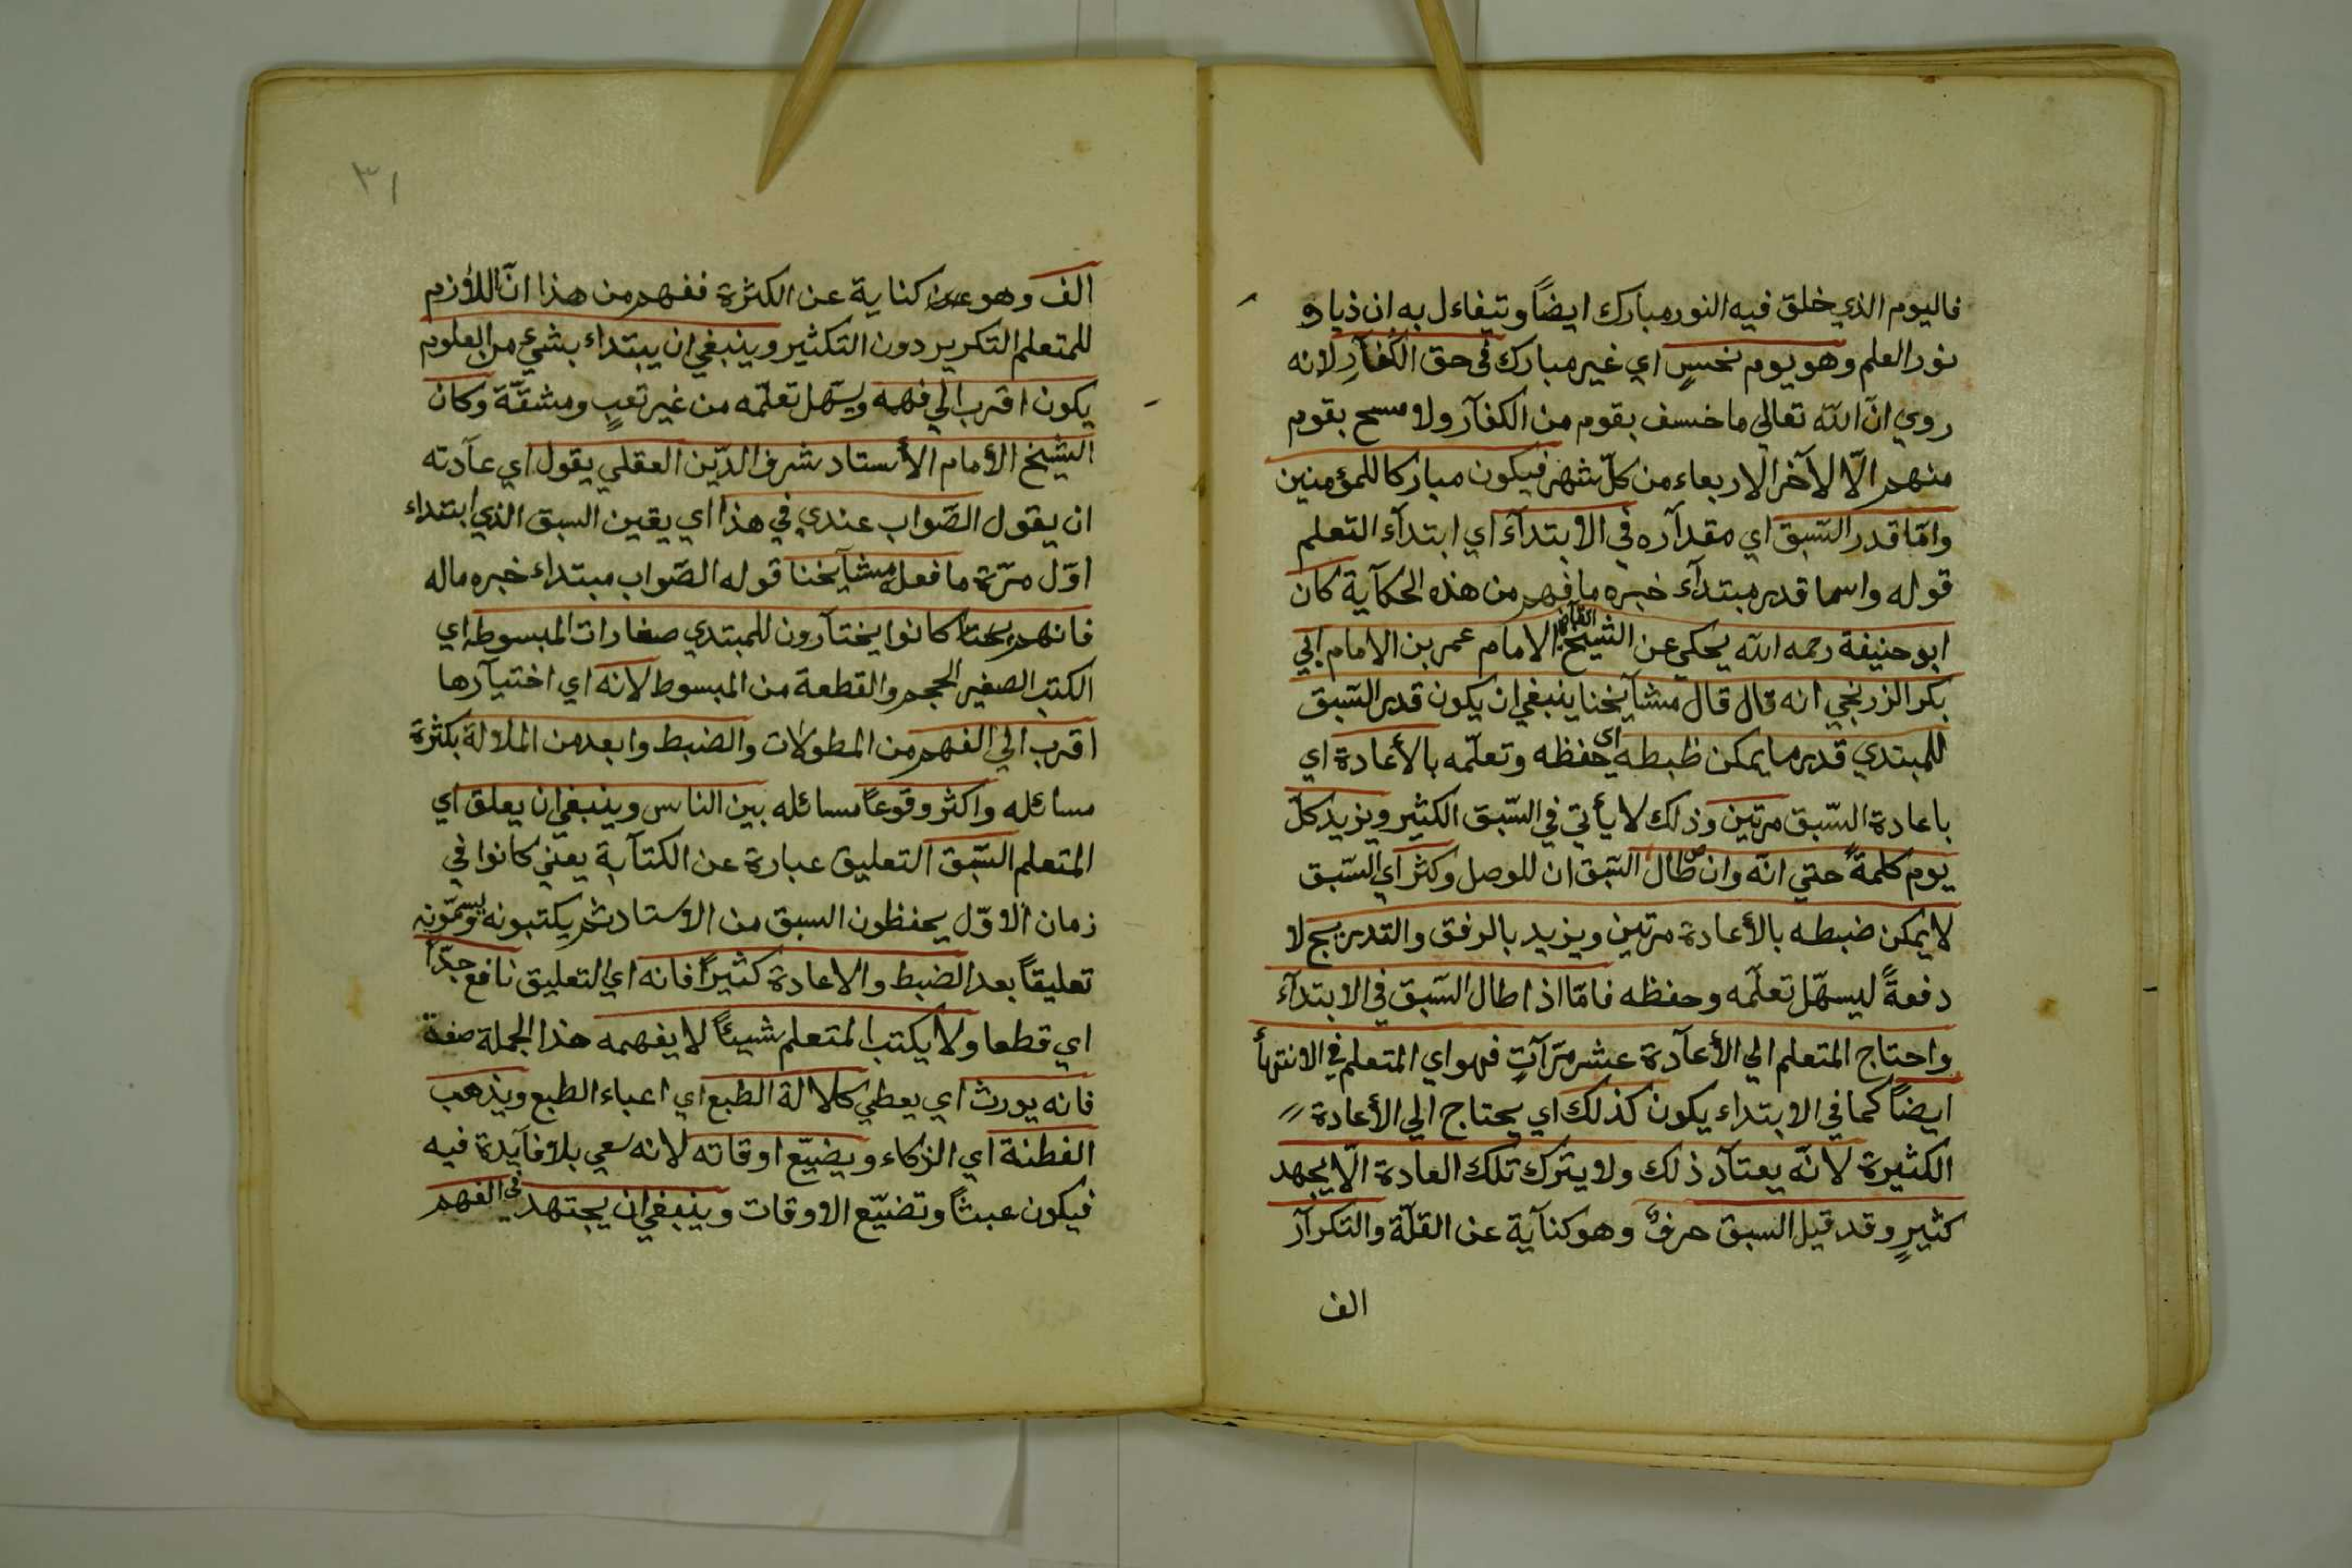 فاليوم الذي خلق فيه النور مبارك ايضاً وتيفاءل به ان ذياد
نور العلم وهو يوم نحسٍ اي غير مبارك في حق الكفآرِ لانه
روي انّ الله تعالي ما خسف بقوم من الكفآر ولا مسح بقوم
منهم الّا لآخر الاربعاء من كلّ شهر فيكون مباركا للمؤمنين
وامّا قدر السّبق اي مقدآره في الابتدآء اي ابتدآء التعلم
قوله واما قدر مبتدآء خبره ما فهم من هذه الحكآية كان
ابو حنيفة رحمه الله يحكي عن الشيخ القاضي الامام عمر بن الامام ابي
بكر الزرنجي انه قال قال مشآيخنا ينبغي ان يكون قدر السّبق
للمبتدي قدر ما يمكن ظبطه اي حفظه وتعلّمه بالأعادة اي
باعادة السّبق مرتين وذلك لا يأتي في السّبق الكثير ويزيد كلّ
يوم كلمةً حتي انّه وان طال السّبق ان للوصل وكثر اي السّبق
لا يمكن ضبطه بالأعادة مرتين ويزيد بالرفق والتدريج لا
دفعةً ليسهّل تعلّمه وحفظه فامّا اذا طال السّبق في الابتدآء
واحتاج المتعلم الي الأعآدة عشر مرّآتٍ فهو اي المتعلم في الانتهأ
ايضاً كما في الابتداء يكون كذلك اي يحتاج الي الأعادة
الكثيرة لانّه يعتآد ذلك ولا يترك تلك العادة الّا بجهد
كثيرٍ وقد قيل السبق حرفٌ وهو كنآية عن القلّة والتكرآر
الف
٣١
الف وهو كناية عن الكثرة ففهم من هذا انّ اللأزم
للمتعلم التكرير دون التكثير وينبغي ان يبتداء بشئ من العلوم
يكون اقرب الي فهمه ويسّهل تعلّمه من غير تعبٍ ومشقّة وكان
الشيخ الأمام الأستاد شرف الدّين العقلي يقول اي عآدته
ان يقول الصّواب عندي في هذا اي يقين السبق الذي ابتداء
اوّل مرّة ما فعله مشآيخنا قوله الصّواب مبتداء خبره ماله
فانهم كانوا يختآرون للمبتدي صغارات المبسوطه اي
الكتب الصغير الحجم والقطعة من المبسوط لانه اي اختيآرها
اقرب الي الفهم من المطولات والضبط وابعد من الملالة بكثرة
مسائله واكثر وقوعاً مسائله بين الناس وينبغي ان يعلق اي
المتعلم السّبق التعليق عبارة عن الكتآبة يعني كانوا في
زمان الاوّل يحفظون السبق من الاستاد ثم يكتبونه ويسمّونه
تعليقاً بعد الضبط والاعادة كثيراً فانه اي التعليق نافع جدّاً
اي قطعا ولا يكتب المتعلم شيئاً لا يفهمه هذا الجملة صفة
فانه يورث اي يعطي كلالة الطبع اي اعياء الطبع ويذهب
الفطنة اي الزكاء ويضيّع اوقاته لانه سعي بلا فآيدة فيه
فيكون عبثاً وتضيّع الاوقات وينبغي ان يجتهد في الفهم